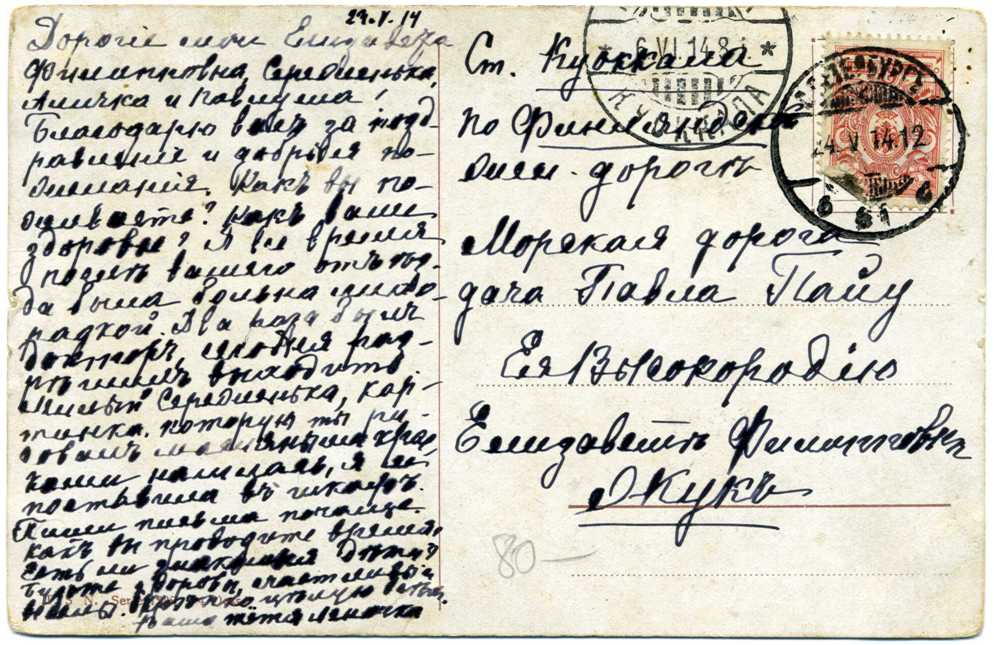 23.V.14
Дорогiе мои Елизавета
Филипповна, Сереженька,
Аличка и Павлуша!
Благодарю васъ за позд-
равленiе и добрыя по-
желанiя. Какъ вы по-
живаете? Какъ ваше
здоровье? Я все время
послѣ вашего отъѣз-
да была больна лихо-
радкой. Два раза былъ
докторъ, сегодня раз-
рѣшилъ выходить.
Милый Сереженька, кар-
тинка которую ты ри-
совалъ масляными крас-
ками нашлась, я ее
поставила въ шкафъ.
Пиши письма почаще.
Какъ вы проводите время,
есть ли знакомыя дѣти?
Будьте здоровы, счастливы
Цѣлую
Ваша тётя Леночка
Ст. Куоккала
по Финляндск.
жел. дорогѣ
Морская дорога
дача Павла Пайу
Ея Высокородiю
Елизаветѣ Филипповнѣ
Жукъ
80–
6.VI.14.8
KUOKKALA
КУОККАЛА
С.ПЕТЕРБУРГЪ
24.V.14.12
6 6
N. Ser.